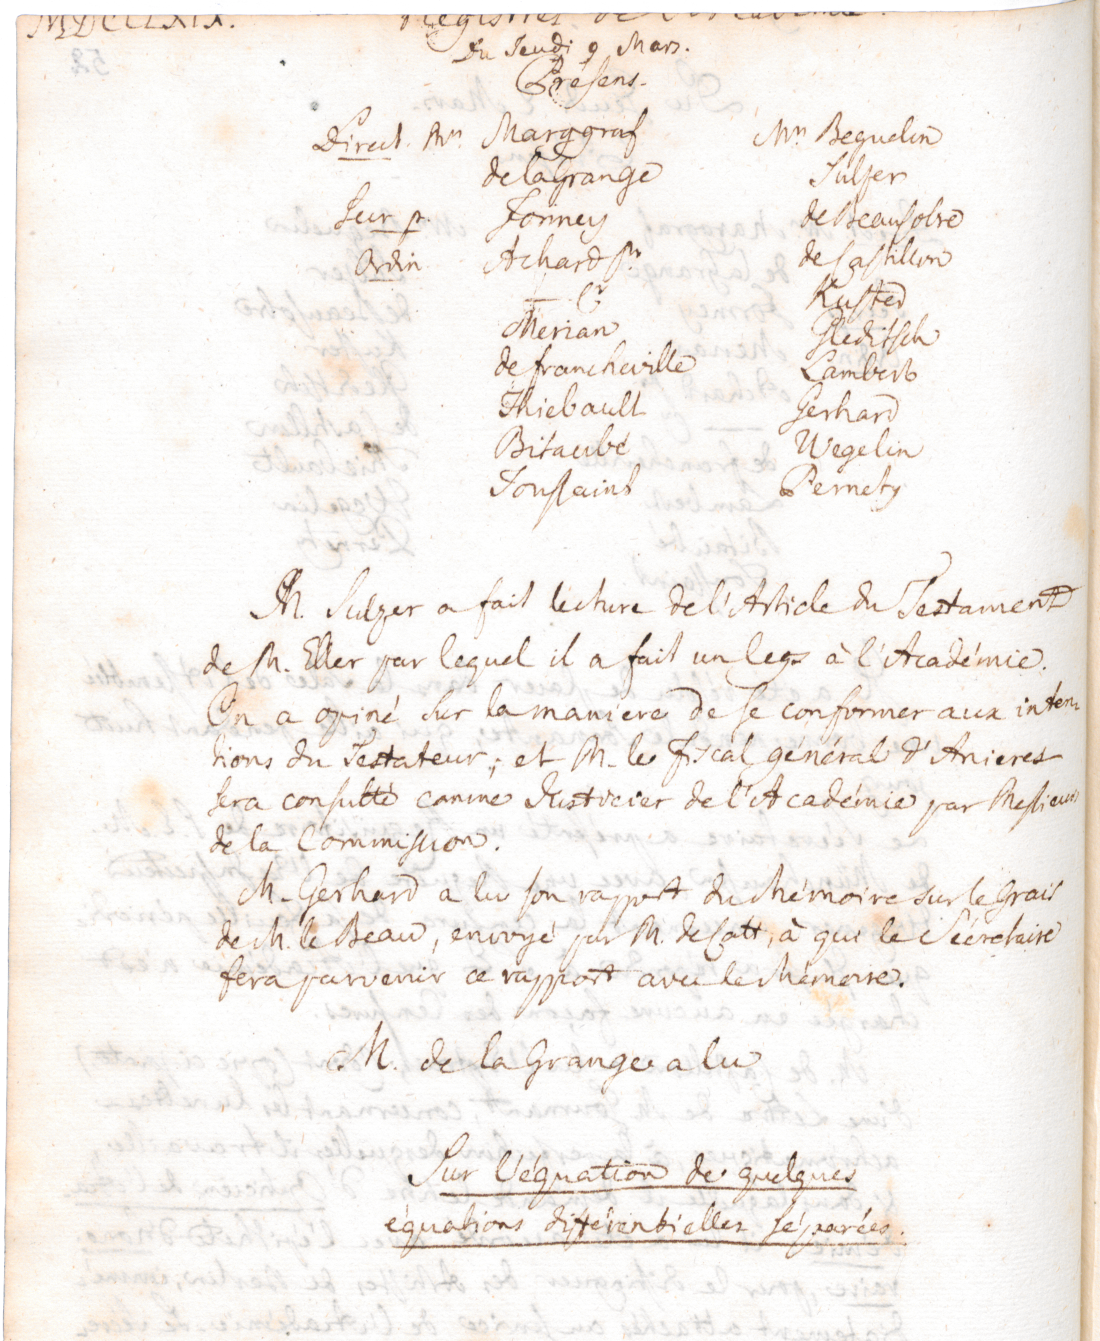 MDCCLXIX. Registres de l'Académie.
Du Jeudi 9 Mars.
Présens.
Direct. Mrs. Marggraf
de la Grange
Secr. p. Formey
Ordin Achard Sr
Cr
Merian
de francheville
Thiebault
Bitaubé
Toussaint
Mrs Beguelin
Sulzer
de Beausobre
de Castillon
Kuster
Gleditsch
Lambert
Gerhard
Wegelin
Pernety
M. Sulzer a fait lecture de l'Article du Testament
de M. Eller par lequel il a fait un legs à l'Académie.
On a opiné sur la maniere de se conformer aux inten-
tions du Testateur; et M. le fiscal général d'Anieres
sera consulté comme Justicier de l'Académie par Messieurs
de la Commission.
M. Gerhard a lu son rapport du Mémoire sur le Grais
de M. le Beau, envoyé par M. de Catt, à qui le Sécretaire
fera parvenir ce rapport avec le Mémoire.
M. de la Grange a lu
Sur l'équation de quelques
équations différentielles séparées.